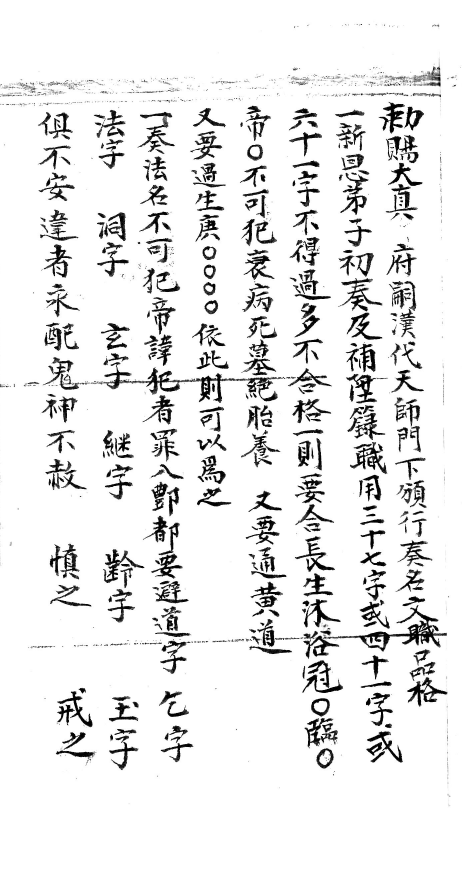 勅賜大真　府嗣漢代天師門下頒行奏名文職品格
一新恩弟子初奏及補陞籙職用三十七字或四十一字或
六十一字不得過多不合格一則要合長生沐浴冠〇臨〇
帝〇不可犯衰病死墓絕胎養　又要通黄道
又要過生庚〇〇〇〇依此則可以爲之
一奏法名不可犯帝諱犯者罪入酆都要避道字　乞字
法字　洞字　玄字　継字　齡字　玉字
俱不安違者永配鬼神不赦　慎之　戒之